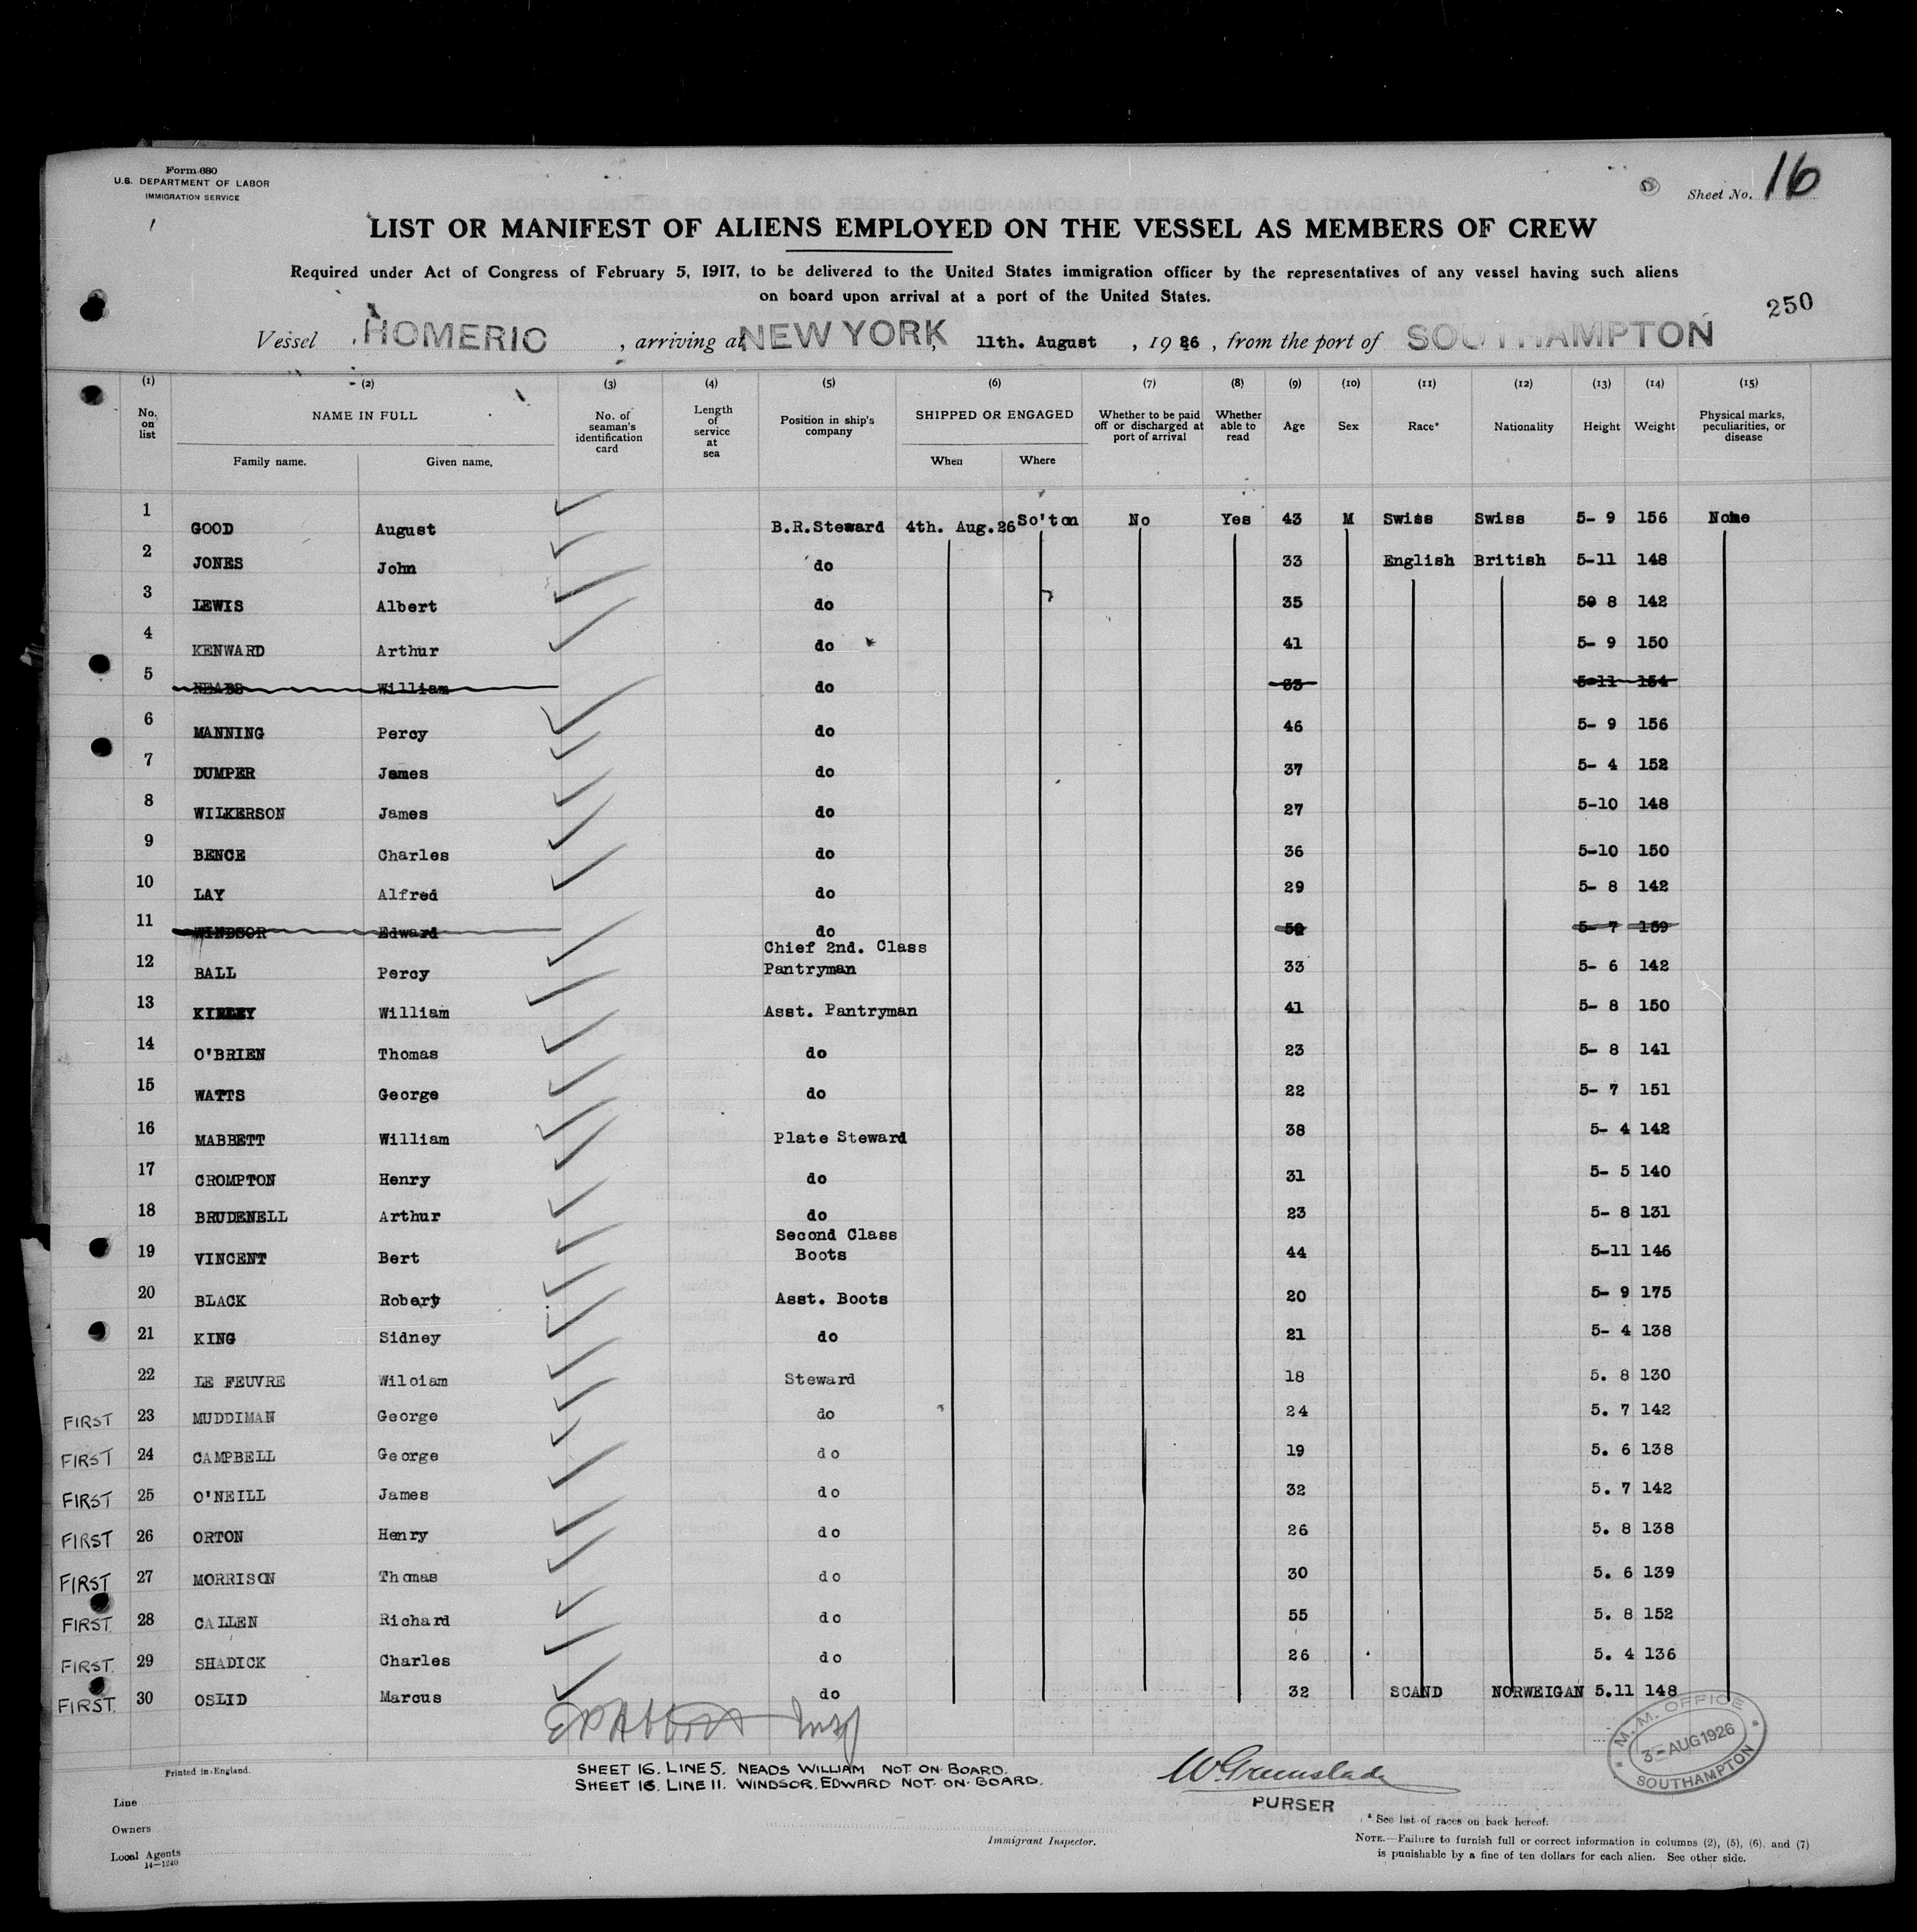 Form 680
U.S. DEPARTMENT OF LABOR
IMMIGRATION SERVICE
Sheet No. 16
LIST OR MANIFEST OF ALIENS EMPLOYED ON THE VESSEL AS MEMBERS OF CREW
Required under Act of Congress of February 5, 1917, to be delivered to the United States immigration officer by the representatives of any vessel having such aliens
on board upon arrival at a port of the United States.
250
Vessel HOMERIC, arriving at NEW YORK, 11th. August, 1926, from the port of SOUTHAMPTON
(1) (2) (3) (4) (5) (6) (7) (8) (9) (10) (11) (12) (13) (14) (15)
No. on list NAME IN FULL No. of seaman's identification card Length of service at sea Position in ship's company SHIPPED OR ENGAGED Whether to be paid off or discharged at port of arrival Whether able to read Age Sex Race* Nationality Height Weight Physical marks, peculiarities, or disease
Family name. Given name. When Where
1 GOOD August B.R.Steward 4th. Aug.26 So'ton No Yes 43 M Swiss Swiss 5- 9 156 None
2 JONES John do 33 English British 5-11 148
3 LEWIS Albert do 35 50 8 142
4 KENWARD Arthur do 41 5- 9 150
5 NEADS William do 33 5-11 154
6 MANNING Percy do 46 5- 9 156
7 DUMPER James do 37 5- 4 152
8 WILKERSON James do 27 5-10 148
9 BENCE Charles do 36 5-10 150
10 LAY Alfred do 29 5- 8 142
11 WINDSOR Edward do 5- 7 159
12 BALL Percy Chief 2nd. Class Pantryman 33 5- 6 142
13 William Asst. Pantryman 41 5- 8 150
14 O'BRIEN Thomas do 23 5- 8 141
15 WATTS George do 22 5- 7 151
16 MABBETT William Plate Steward 38 5- 4 142
17 CROMPTON Henry do 31 5- 5 140
18 BRUDENELL Arthur do 23 5- 8 131
19 VINCENT Bert Second Class Boots 44 5-11 146
20 BLACK Robert Asst. Boots 20 5- 9 175
21 KING Sidney do 21 5- 4 138
22 LE FEUVRE Wiloiam Steward 18 5. 8 130
FIRST 23 MUDDIMAN George do 24 5. 7 142
FIRST 24 CAMPBELL George do 19 5. 6 138
FIRST 25 O'NEILL James do 32 5. 7 142
FIRST 26 ORTON Henry do 26 5. 8 138
FIRST 27 MORRISON Thomas do 30 5. 6 139
FIRST 28 CALLEN Richard do 55 5. 8 152
FIRST. 29 SHADICK Charles do 26 5. 4 136
FIRST. 30 OSLID Marcus do 32 SCAND NORWEIGAN 5.11 148
M. M. OFFICE
3-AUG 1926
SOUTHAMPTON
Printed in England.
SHEET 16. LINE 5. NEADS WILLIAM NOT ON BOARD.
SHEET 16. LINE 11. WINDSOR. EDWARD NOT ON BOARD.
PURSER
Line
Owners
Local Agents
14—1240
Immigrant Inspector.
* See list of races on back hereof.
NOTE.—Failure to furnish full or correct information in columns (2), (5), (6), and (7)
is punishable by a fine of ten dollars for each alien. See other side.